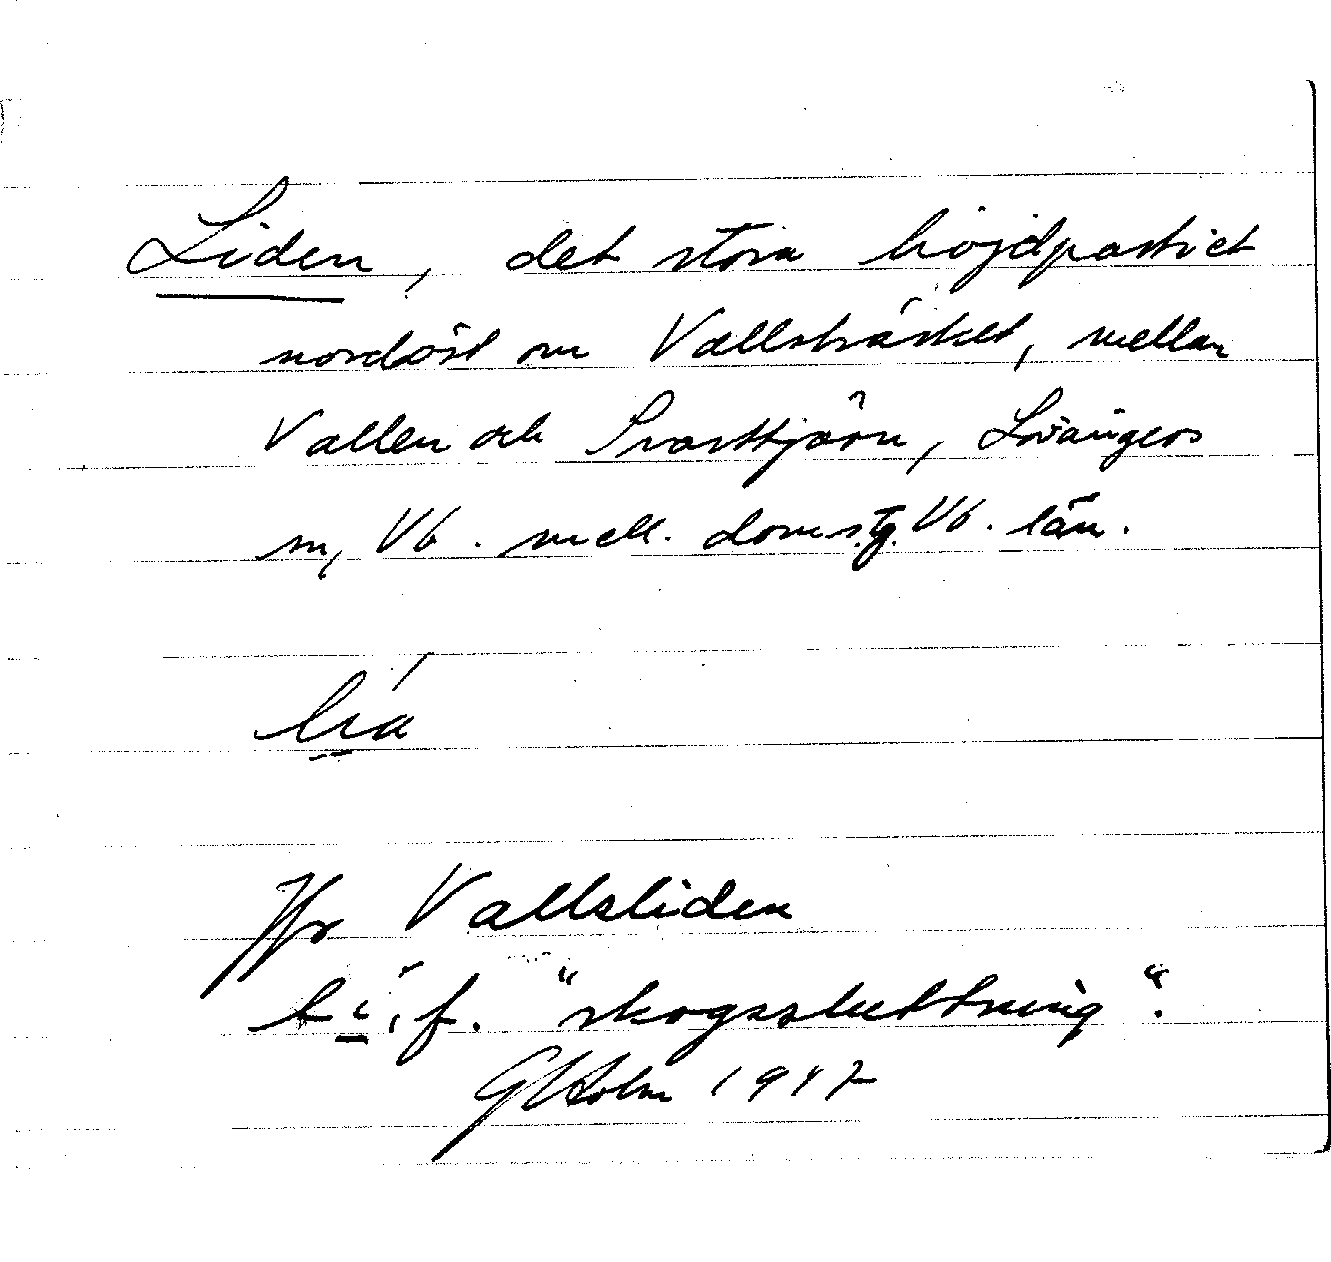 Liden, det stora höjdpartiet
nordöst om Vallsträsket, mellan
Vallen och Svarttjärn, Lövångers
sn, Vb. mell. doms.tg. Vb. län.
li̲´a
Jfr Vallsliden
li̲´, f. "skogssluttning".
GHolm 1947